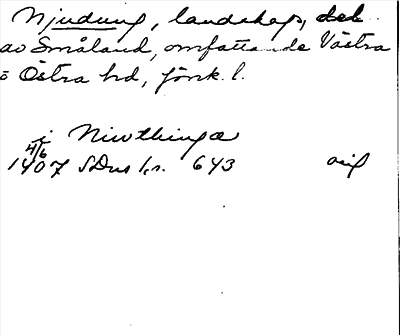 Njudung, landskap, del
av Småland, omfattande Västra
o Östra hd, Jönk. l.
i Niwthingæ
4/6
1407 SDns 1, s. 643 orig